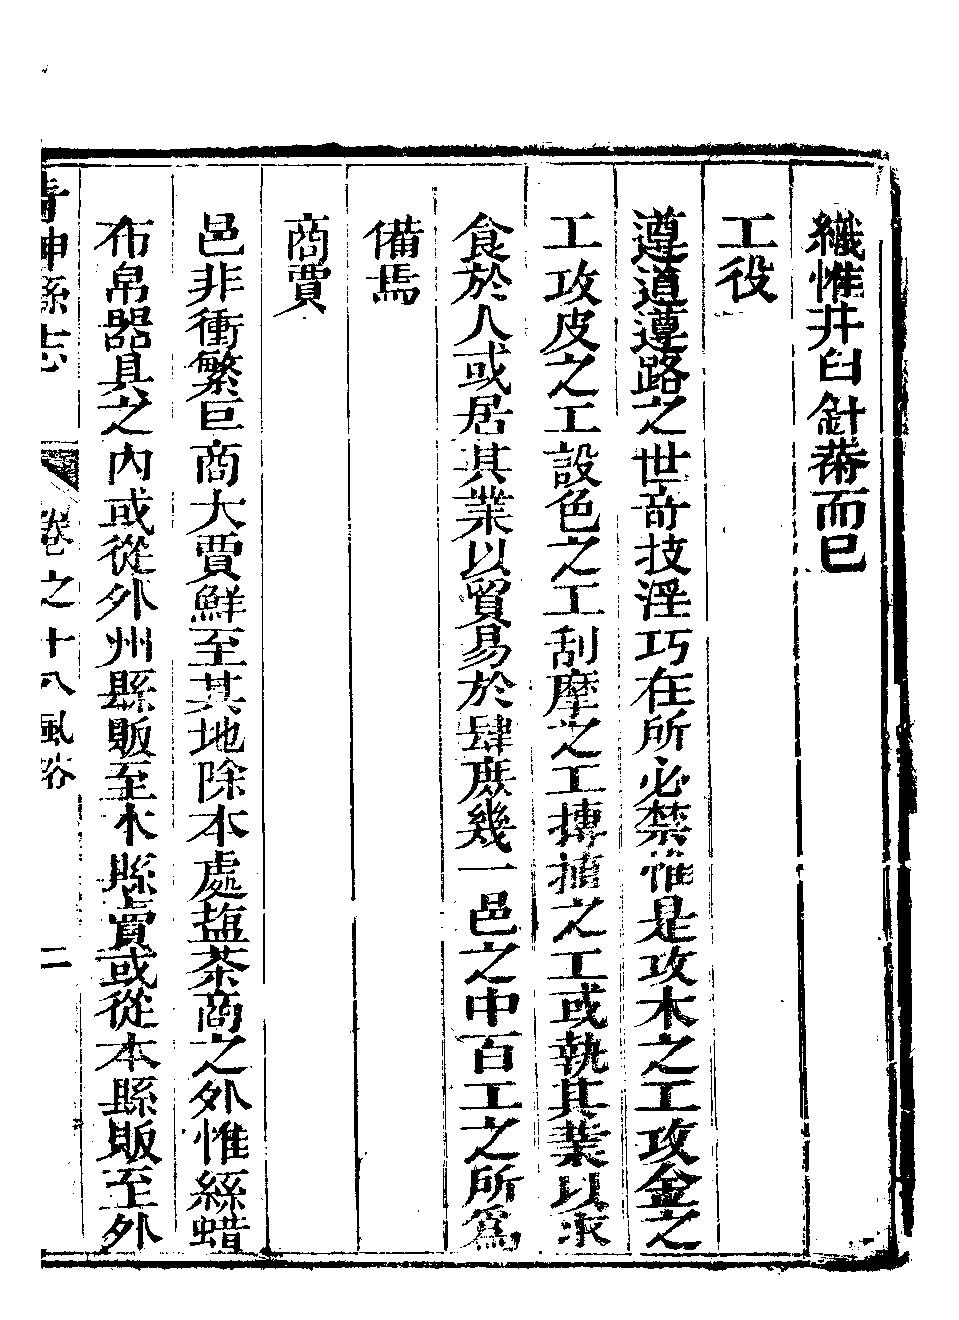 織惟井臼針黹而已
工役
遵道遵路之世奇技淫巧在所必禁惟是攻木之工攻金之
工攻皮之工設色之工刮摩之工摶埴之工或執其業以求
食於人或居其業以貿易於肆庶幾一邑之中百工之所爲
備焉
商賈
邑非衝繁巨商大賈鮮至其地除本處塩茶商之外惟絲蜡
布帛器具之內或從外州縣販至本縣賣或從本縣販至外
青神縣志 卷之十八風俗 二